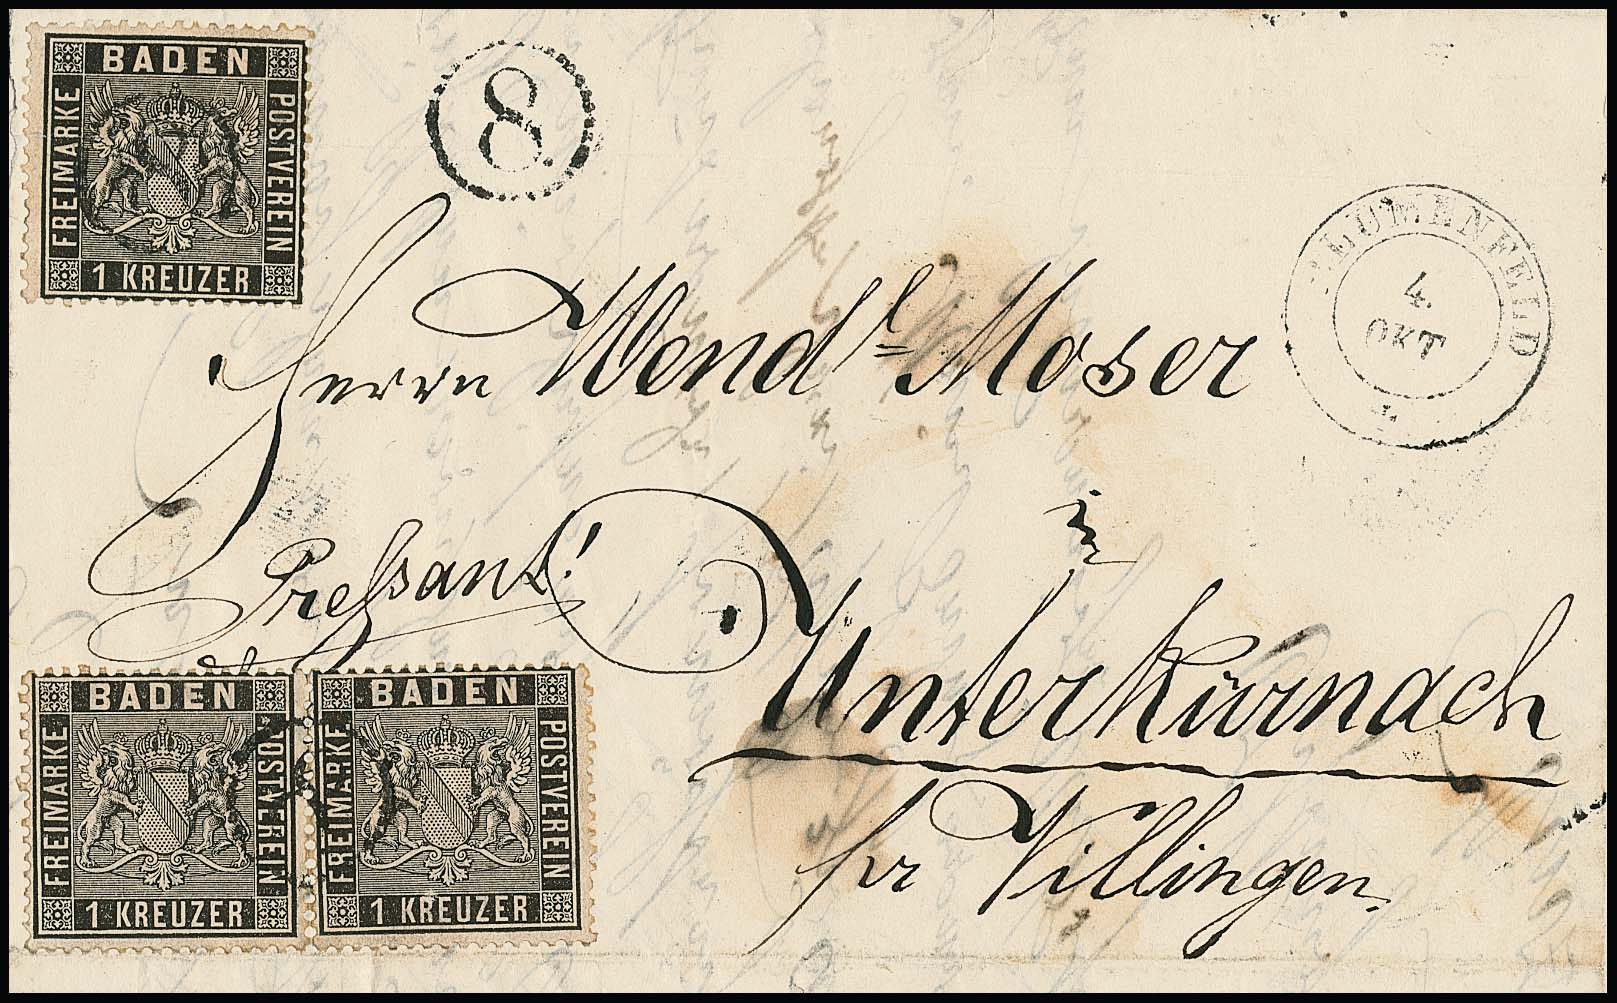 BADEN
FREIMARKE
POSTVEREIN
1 KREUZER
8
BLUMENFELD
4.
OKT
Herrn Wendl Moser
Pressant!
in
Unterkürnach
pr Villingen.
BADEN
FREIMARKE
POSTVEREIN
1 KREUZER
BADEN
FREIMARKE
POSTVEREIN
1 KREUZER